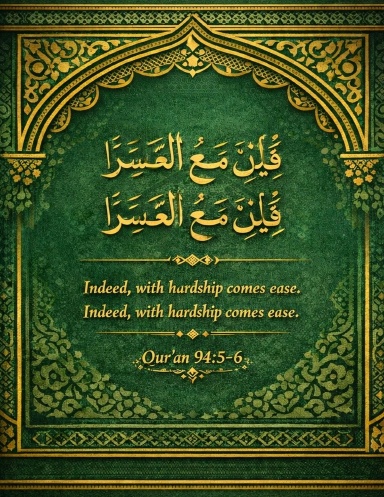 مَعُ العَسَرَا
مَعُ العَسَرَا
Indeed, with hardship comes ease.
Indeed, with hardship comes ease.
Qur'an 94:5-6